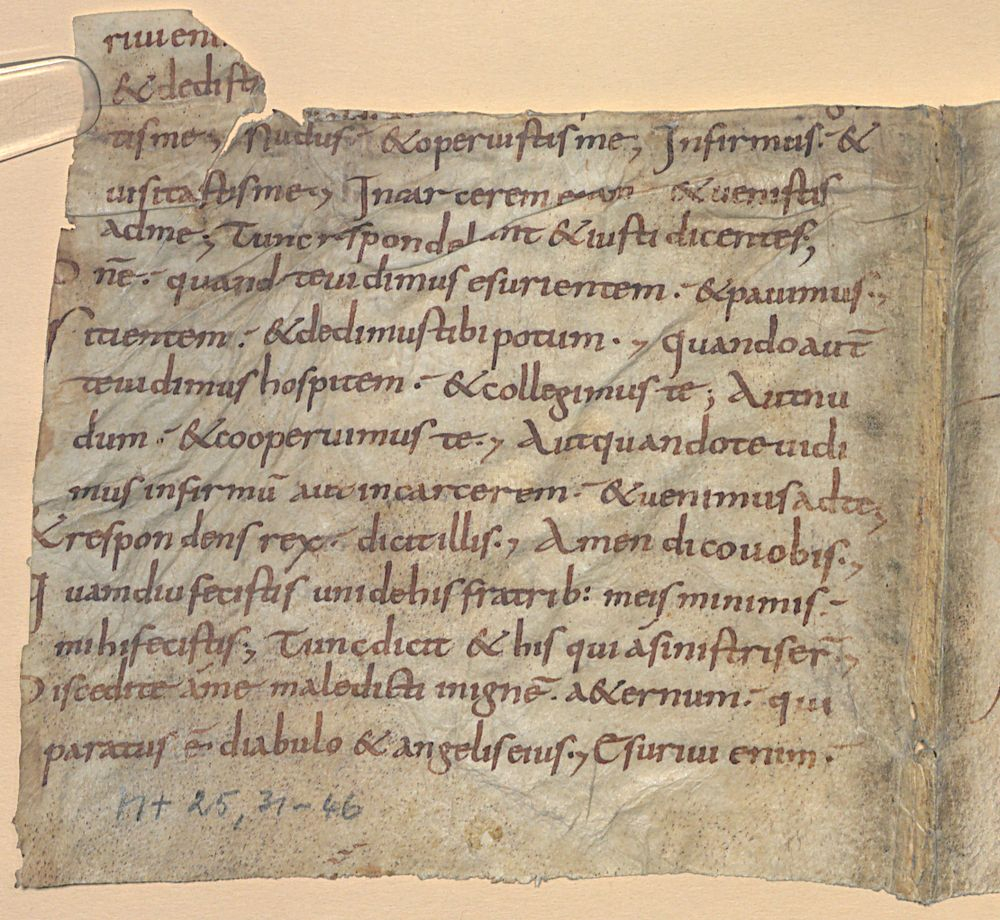 riui eni
& dedisti
tis me; Nudus & operuistis me; Infirmus &
uisitastis me; In carcerem & uenistis
ad me; Tunc respondebunt & iusti dicentes;
Dnē quando te uidimus esurientem & pauimus;
Sitientem & dedimus tibi potum; quando aut̄
te uidimus hospitem & collegimus te; Aut nu
dum & cooperuimus te; Aut quando te uidi
mus infirmū aut in carcerem & uenimus ad te;
& respondens rex dicit illis; Amen dico uobis;
Quamdiu fecistis uni de his fratrib: meis minimis
mihi fecistis; Tunc dicit & his qui a sinistris er̄;
Discedite a me maledicti in ignē a&ernum qui
paratus ē diabulo & angelis eius; Esuriui enim
Mt 25, 31-46